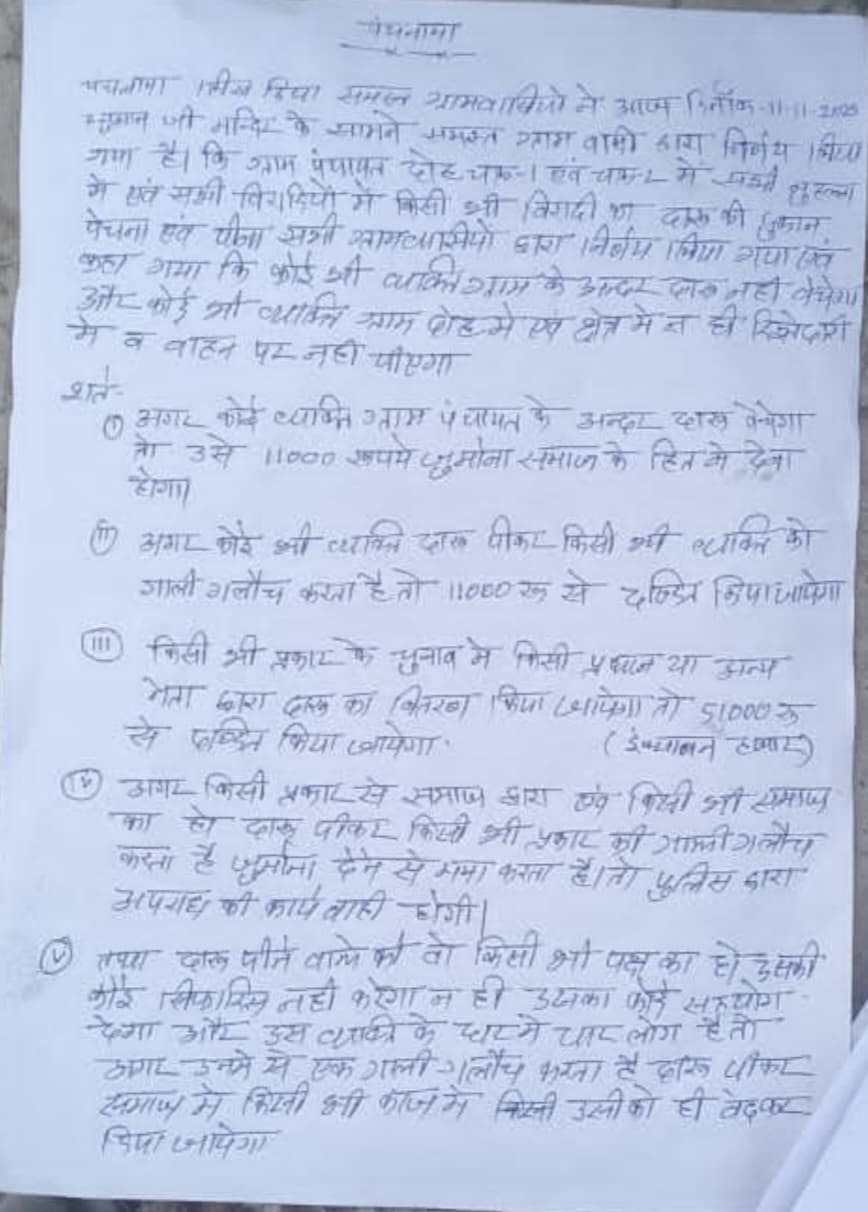 पंचनामा
पंचनामा लिख दिया समस्त ग्रामवासियो ने आज दिनाँक-11-11-2025
हनुमान जी मन्दिर के सामने समस्त ग्राम वासी द्वारा निर्णय लिया
गया है। कि ग्राम पंचायत दोह चक-1 एवं चक-2 में सभी मुहल्ला
मे एवं सभी विरादियो में किसी भी विरादी का दारू की दुकान
बेचना एवं पीना सभी ग्रामवासियो द्वारा निर्णय लिया गया एवं
कहा गया कि कोई भी व्यक्ति ग्राम के अन्दर दारू नही बेचेगा
और कोई भी व्यक्ति ग्राम दोह मे एवं क्षेत्र मे न ही रिश्तेदारी
मे व वाहन पर नही पीएगा
शर्ते-
(i) अगर कोई व्यक्ति ग्राम पंचायत के अन्दर दारू बेचेगा
तो उसे 11000 रूपये जुर्माना समाज के हित मे देना
होगा।
(ii) अगर कोई भी व्यक्ति दारू पीकर किसी भी व्यक्ति को
गाली गलौच करता है तो 11000 रू से दण्डित किया जायेगा
(iii) किसी भी प्रकार के चुनाव मे किसी प्रधान या अन्य
नेता द्वारा दारू का वितरण किया जायेगा तो 51000 रू
से दण्डित किया जायेगा. (इक्यावन हजार)
(iv) अगर किसी प्रकार से समाज द्वारा एवं किसी भी समाज
का हो दारू पीकर किसी भी प्रकार की गाली गलौच
करता है जुर्माना देने से मना करता है। तो पुलिस द्वारा
अपराध की कार्यवाही होगी।
(v) तथा दारू पीने वाले को वो किसी भी पक्ष का हो उसकी
कोई सिफारिस नही करेगा न ही उसका कोई सहयोग
देगा और उस व्यक्ति के घर मे चार लोग है तो
अगर उनमे से एक गाली गलौच करता है दारू पीकर
समाज मे किसी भी काज मे उसी को ही
दिया जायेगा